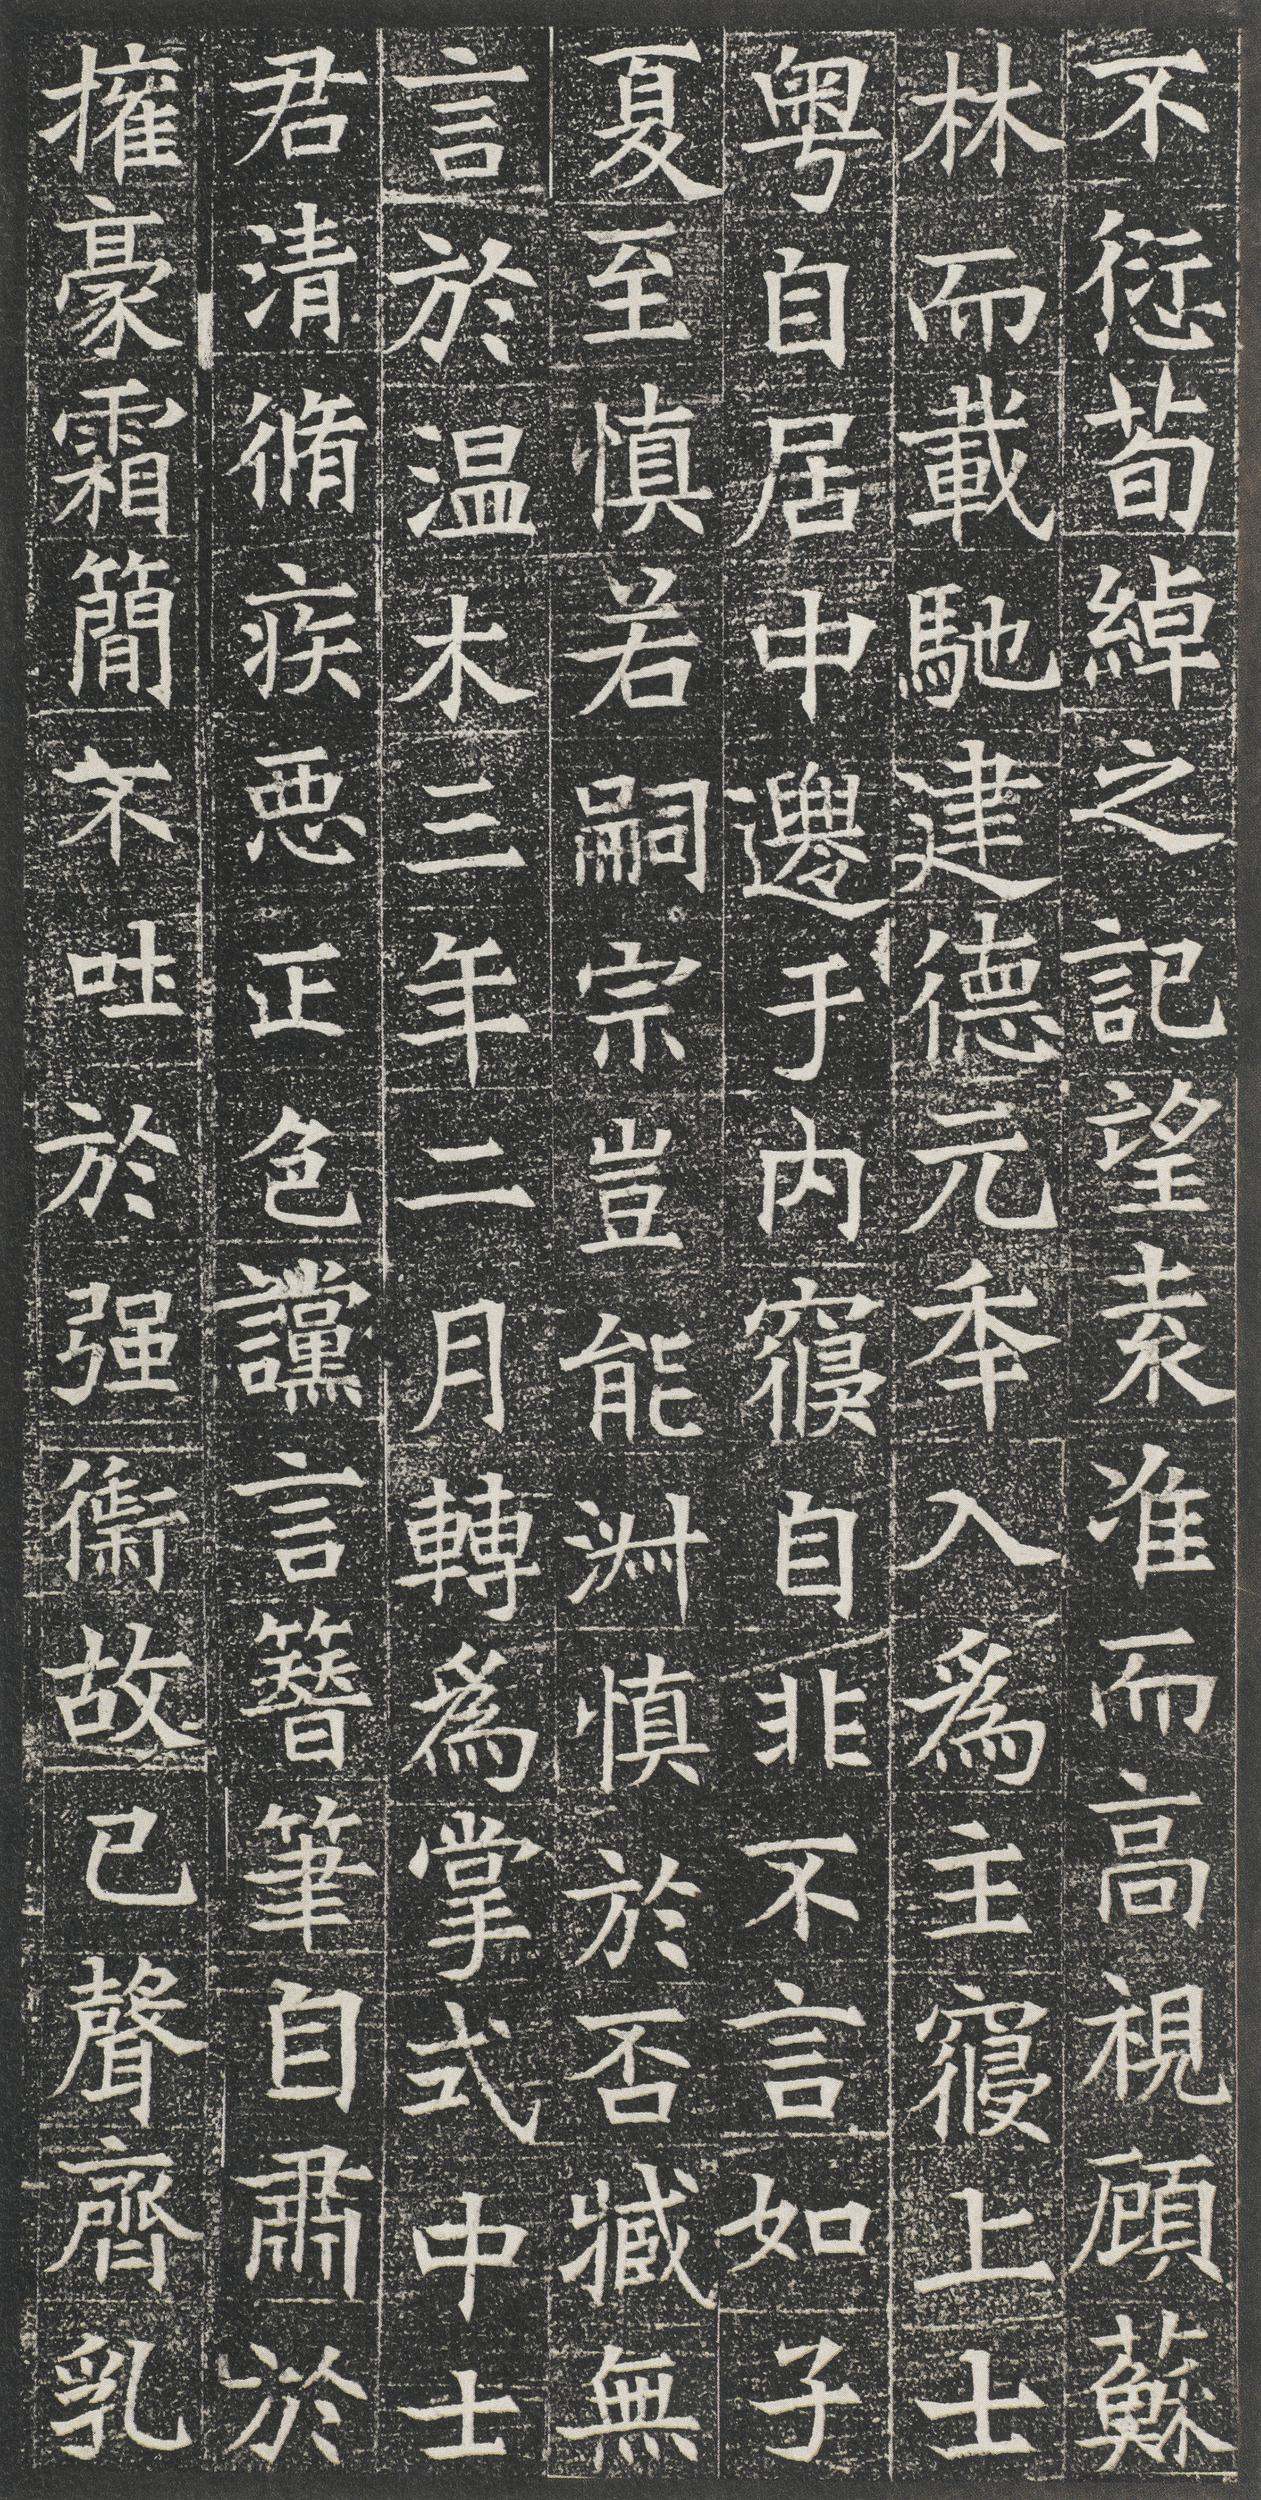 不愆荀綽之記望袁准而高視顧蘇
林而載馳建德元年入爲主寢上士
粤自居中邊于内寢自非不言如子
夏至慎若嗣宗豈能淵慎於否臧無
言於温木三年二月轉爲掌式中士
君清脩疾惡正色讜言簪筆自肅於
擁豪霜簡不吐於强禦故已聲齊乳